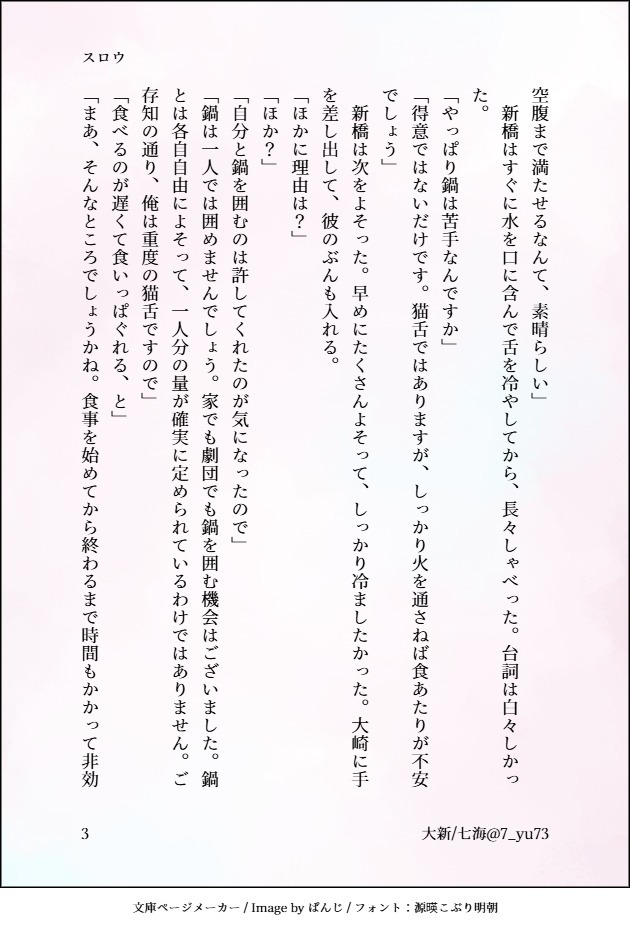 スロウ
空腹まで満たせるなんて、素晴らしい」
　新橋はすぐに水を口に含んで舌を冷やしてから、長々しゃべった。台詞は白々しかっ
た。
「やっぱり鍋は苦手なんですか」
「得意ではないだけです。猫舌ではありますが、しっかり火を通さねば食あたりが不安
でしょう」
　新橋は次をよそった。早めにたくさんよそって、しっかり冷ましたかった。大崎に手
を差し出して、彼のぶんも入れる。
「ほかに理由は？」
「ほか？」
「自分と鍋を囲むのは許してくれたのが気になったので」
「鍋は一人では囲めませんでしょう。家でも劇団でも鍋を囲む機会はございました。鍋
とは各自自由によそって、一人分の量が確実に定められているわけではありません。ご
存知の通り、俺は重度の猫舌ですので」
「食べるのが遅くて食いっぱぐれる、と」
「まあ、そんなところでしょうかね。食事を始めてから終わるまで時間もかかって非効
3
大新/七海@7_yu73
文庫ページメーカー / Image by ぱんじ / フォント：源暎こぶり明朝